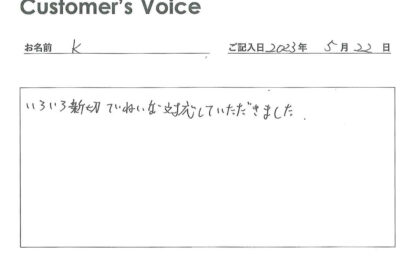 Customer's Voice
お名前 K ご記入日 2023年 5月 22日
いろいろ親切ていねいな対応していただきました.